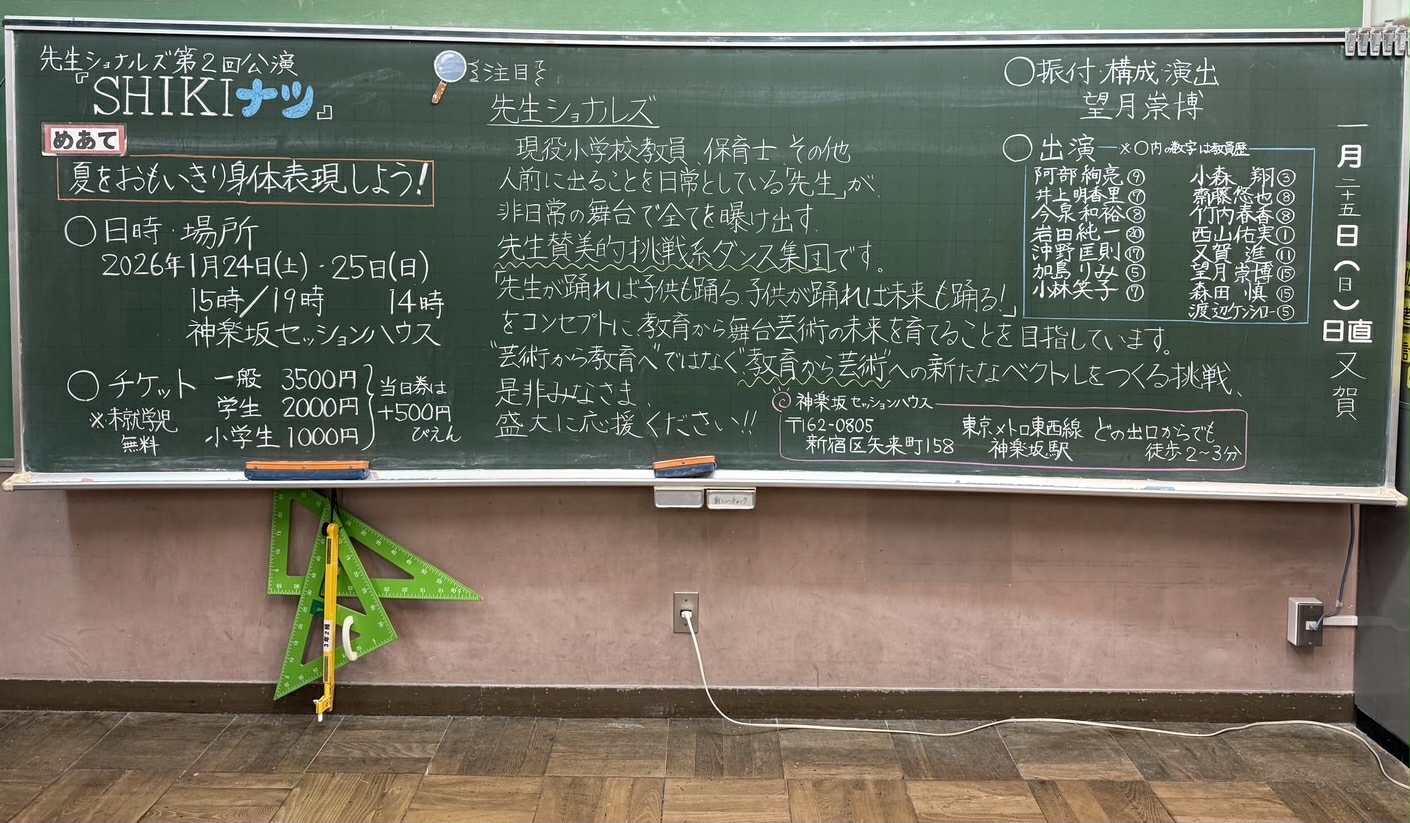 先生ショナルズ第2回公演
『SHIKIナツ』
めあて
夏をおもいきり身体表現しよう!
○日時・場所
2026年1月24日(土)・25日(日)
15時/19時 14時
神楽坂セッションハウス
○チケット
※未就学児
無料
一般 3500円
学生 2000円
小学生 1000円
当日券は
+500円
ぴえん
注目
先生ショナルズ
現役小学校教員、保育士、その他
人前に出ることを日常としている「先生」が、
非日常の舞台で全てを曝け出す
先生賛美的挑戦系ダンス集団です。
「先生が踊れば子供も踊る 子供が踊れば未来も踊る!」
をコンセプトに教育から舞台芸術の未来を育てることを目指しています。
"芸術から教育へ"ではなく"教育から芸術"への新たなベクトルをつくる挑戦、
是非みなさま、
盛大に応援ください!!
神楽坂セッションハウス
〒162-0805
新宿区矢来町158
東京メトロ東西線
神楽坂駅
どの出口からでも
徒歩2~3分
○振付・構成・演出
望月崇博
○出演 ※○内の数字は教員歴
阿部絢亮⑨
井上明香里⑦
今泉和裕⑧
岩田純一⑳
沖野匡則⑰
加島りみ⑤
小林笑子⑦
小森翔③
齋藤悠也⑧
竹内春香⑧
西山佑実①
又賀進⑪
望月崇博⑮
森田慎⑮
渡辺ケンシロー⑤
一月二十五日(日)
日直
又賀